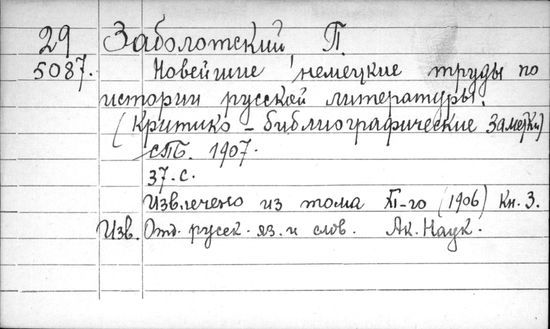 29 Заболотский П.
5087. Новейшие немецкие труды по
истории русской литературы.
(Критико-библиографические заметки)
СПб. 1907.
37. с.
Извлечено из тома XI-го (1906) Кн. 3.
Изв. Отд. русск. яз. и слов. Ак. Наук.